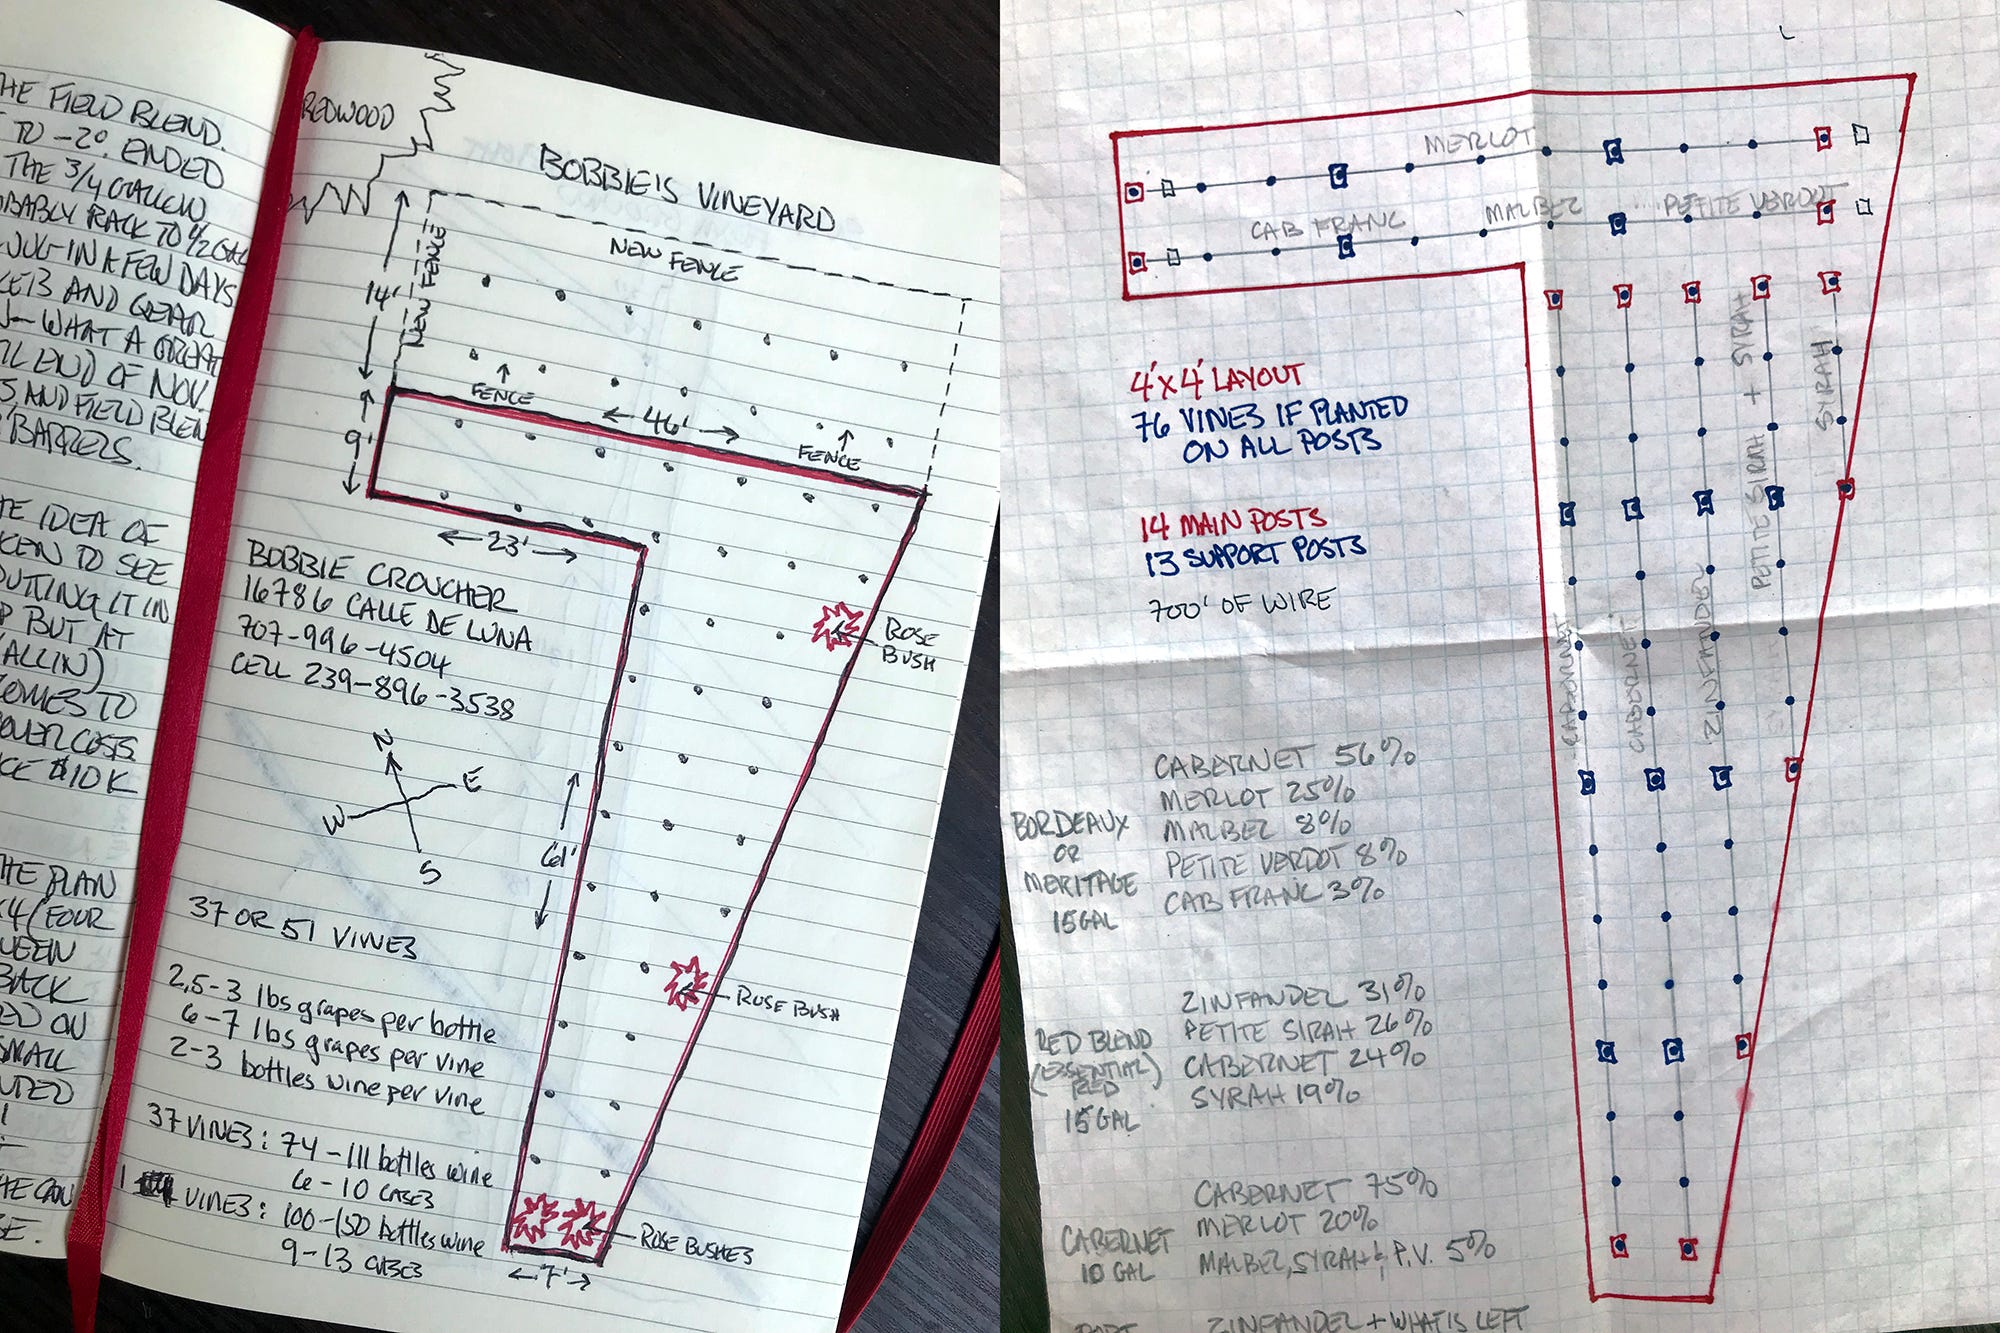 HE FIELD BLEND.
TO -2°. ENDED
THE 3/4 GALLON
OBABLY RACK TO 1/2 GAL
JUG IN A FEW DAYS
AND GREAR
WHAT A GREAT
END OF NOV.
AND FIELD BLEN
BARRELS.
TE IDEA OF
KEN TO SEE
UTTING IT IN
P BUT AT
ALL IN)
COMES TO
OVER COSTS
CE $10K
HE PLAN
X4 (FOUR
BACK
ED ON
SMALL
HE CAN
SE.
REDWOOD
BOBBIE'S VINEYARD
NEW FENCE
NEW FENCE
14'
FENCE
46'
FENCE
9'
23'
BOBBIE CROUCHER
16786 CALLE DE LUNA
707-996-4504
CELL 239-896-3538
ROSE
BUSH
N
E
W
S
61'
37 OR 51 VINES
ROSE BUSH
2.5-3 lbs grapes per bottle
6-7 lbs grapes per vine
2-3 bottles wine per vine
37 VINES: 74-111 bottles wine
6-10 CASES
VINES: 100-150 bottles wine
9-13 CASES
ROSE BUSHES
7'
MERLOT
CAB FRANC MALBEC PETITE VERDOT
4'x4' LAYOUT
76 VINES IF PLANTED
ON ALL POSTS
14 MAIN POSTS
13 SUPPORT POSTS
700' OF WIRE
CABERNET
CABERNET
ZINFANDEL
PETITE SIRAH + SYRAH
SYRAH
BORDEAUX
OR
MERITAGE
15 GAL
CABERNET 56%
MERLOT 25%
MALBEC 8%
PETITE VERDOT 8%
CAB FRANC 3%
RED BLEND
(ESSENTIAL)
RED
15 GAL
ZINFANDEL 31%
PETITE SIRAH 26%
CABERNET 24%
SYRAH 19%
CABERNET
10 GAL
CABERNET 75%
MERLOT 20%
MALBEC, SYRAH & P.V. 5%
PORT
ZINFANDEL + WHAT IS LEFT